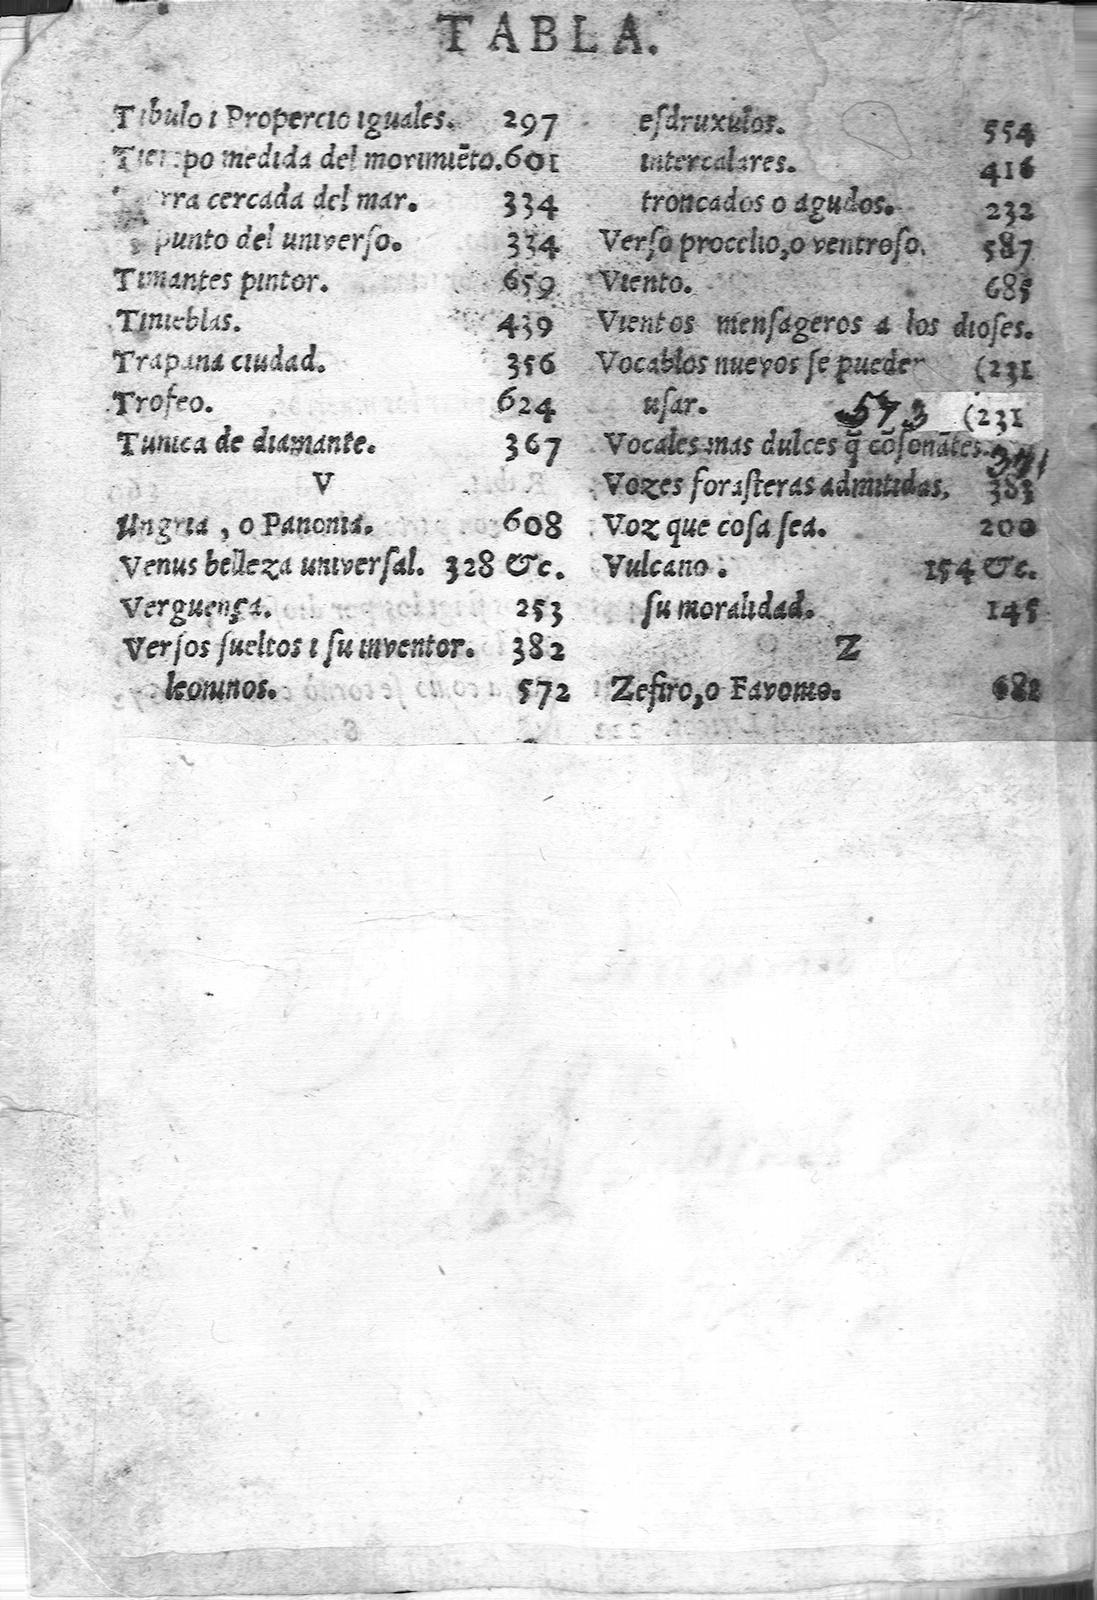 TABLA.
Tibulo i Propercio iguales. 297
Tiempo medida del movimiẽto. 601
rra cercada del mar. 334
punto del universo. 334
Timantes pintor. 659
Tinieblas. 439
Trapana ciudad. 356
Trofeo. 624
Tunica de diamante. 367
V
Ungria, o Panonia. 608
Venus belleza universal. 328 &c.
Verguença. 253
Versos sueltos i su inventor. 382
leoninos. 572
esdruxulos. 554
intercalares. 416
troncados o agudos. 232
Verso procelio, o ventroso. 587
Viento. 685
Vientos mensageros a los dioses.
Vocablos nuevos se pueder (231
usar. 573 (231
Vocales mas dulces q̃ cõsonãtes.
Vozes forasteras admitidas. 383
Voz que cosa sea. 200
Vulcano. 154 &c.
su moralidad. 145
Z
Zefiro, o Favonio. 682